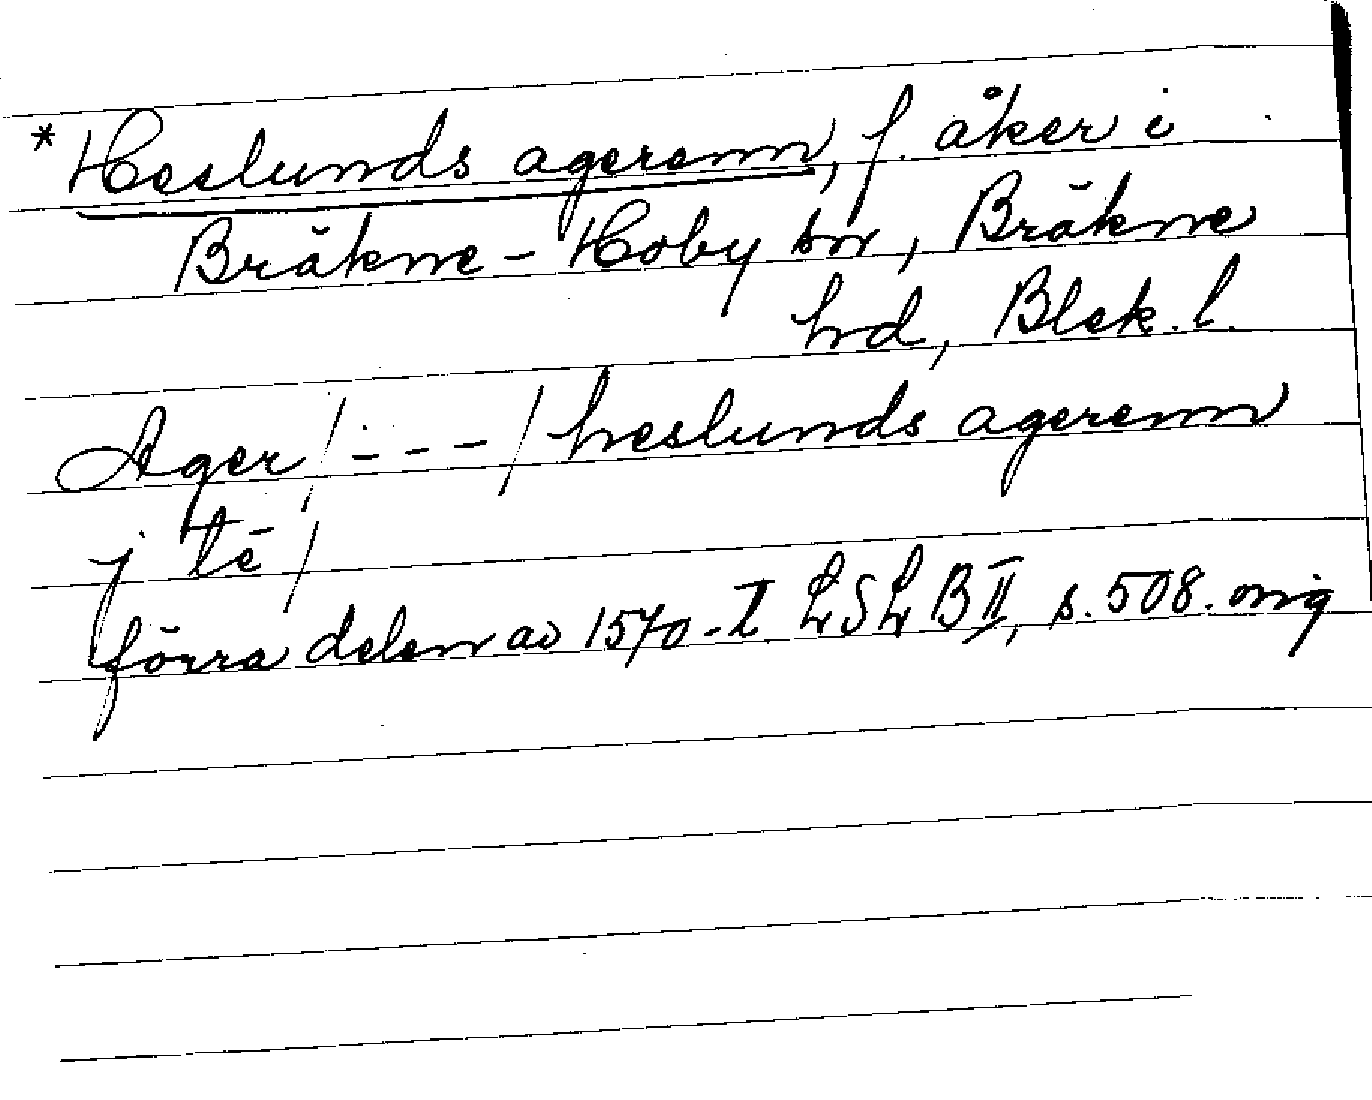 * Heslunds agerenn, f. åker i
Bräkne-Hoby sn, Bräkne
hd, Blek. l.
Ager / - - - / heslunds agerenn
j té /
förra delen av 1570-t LSLB II, s. 508. orig